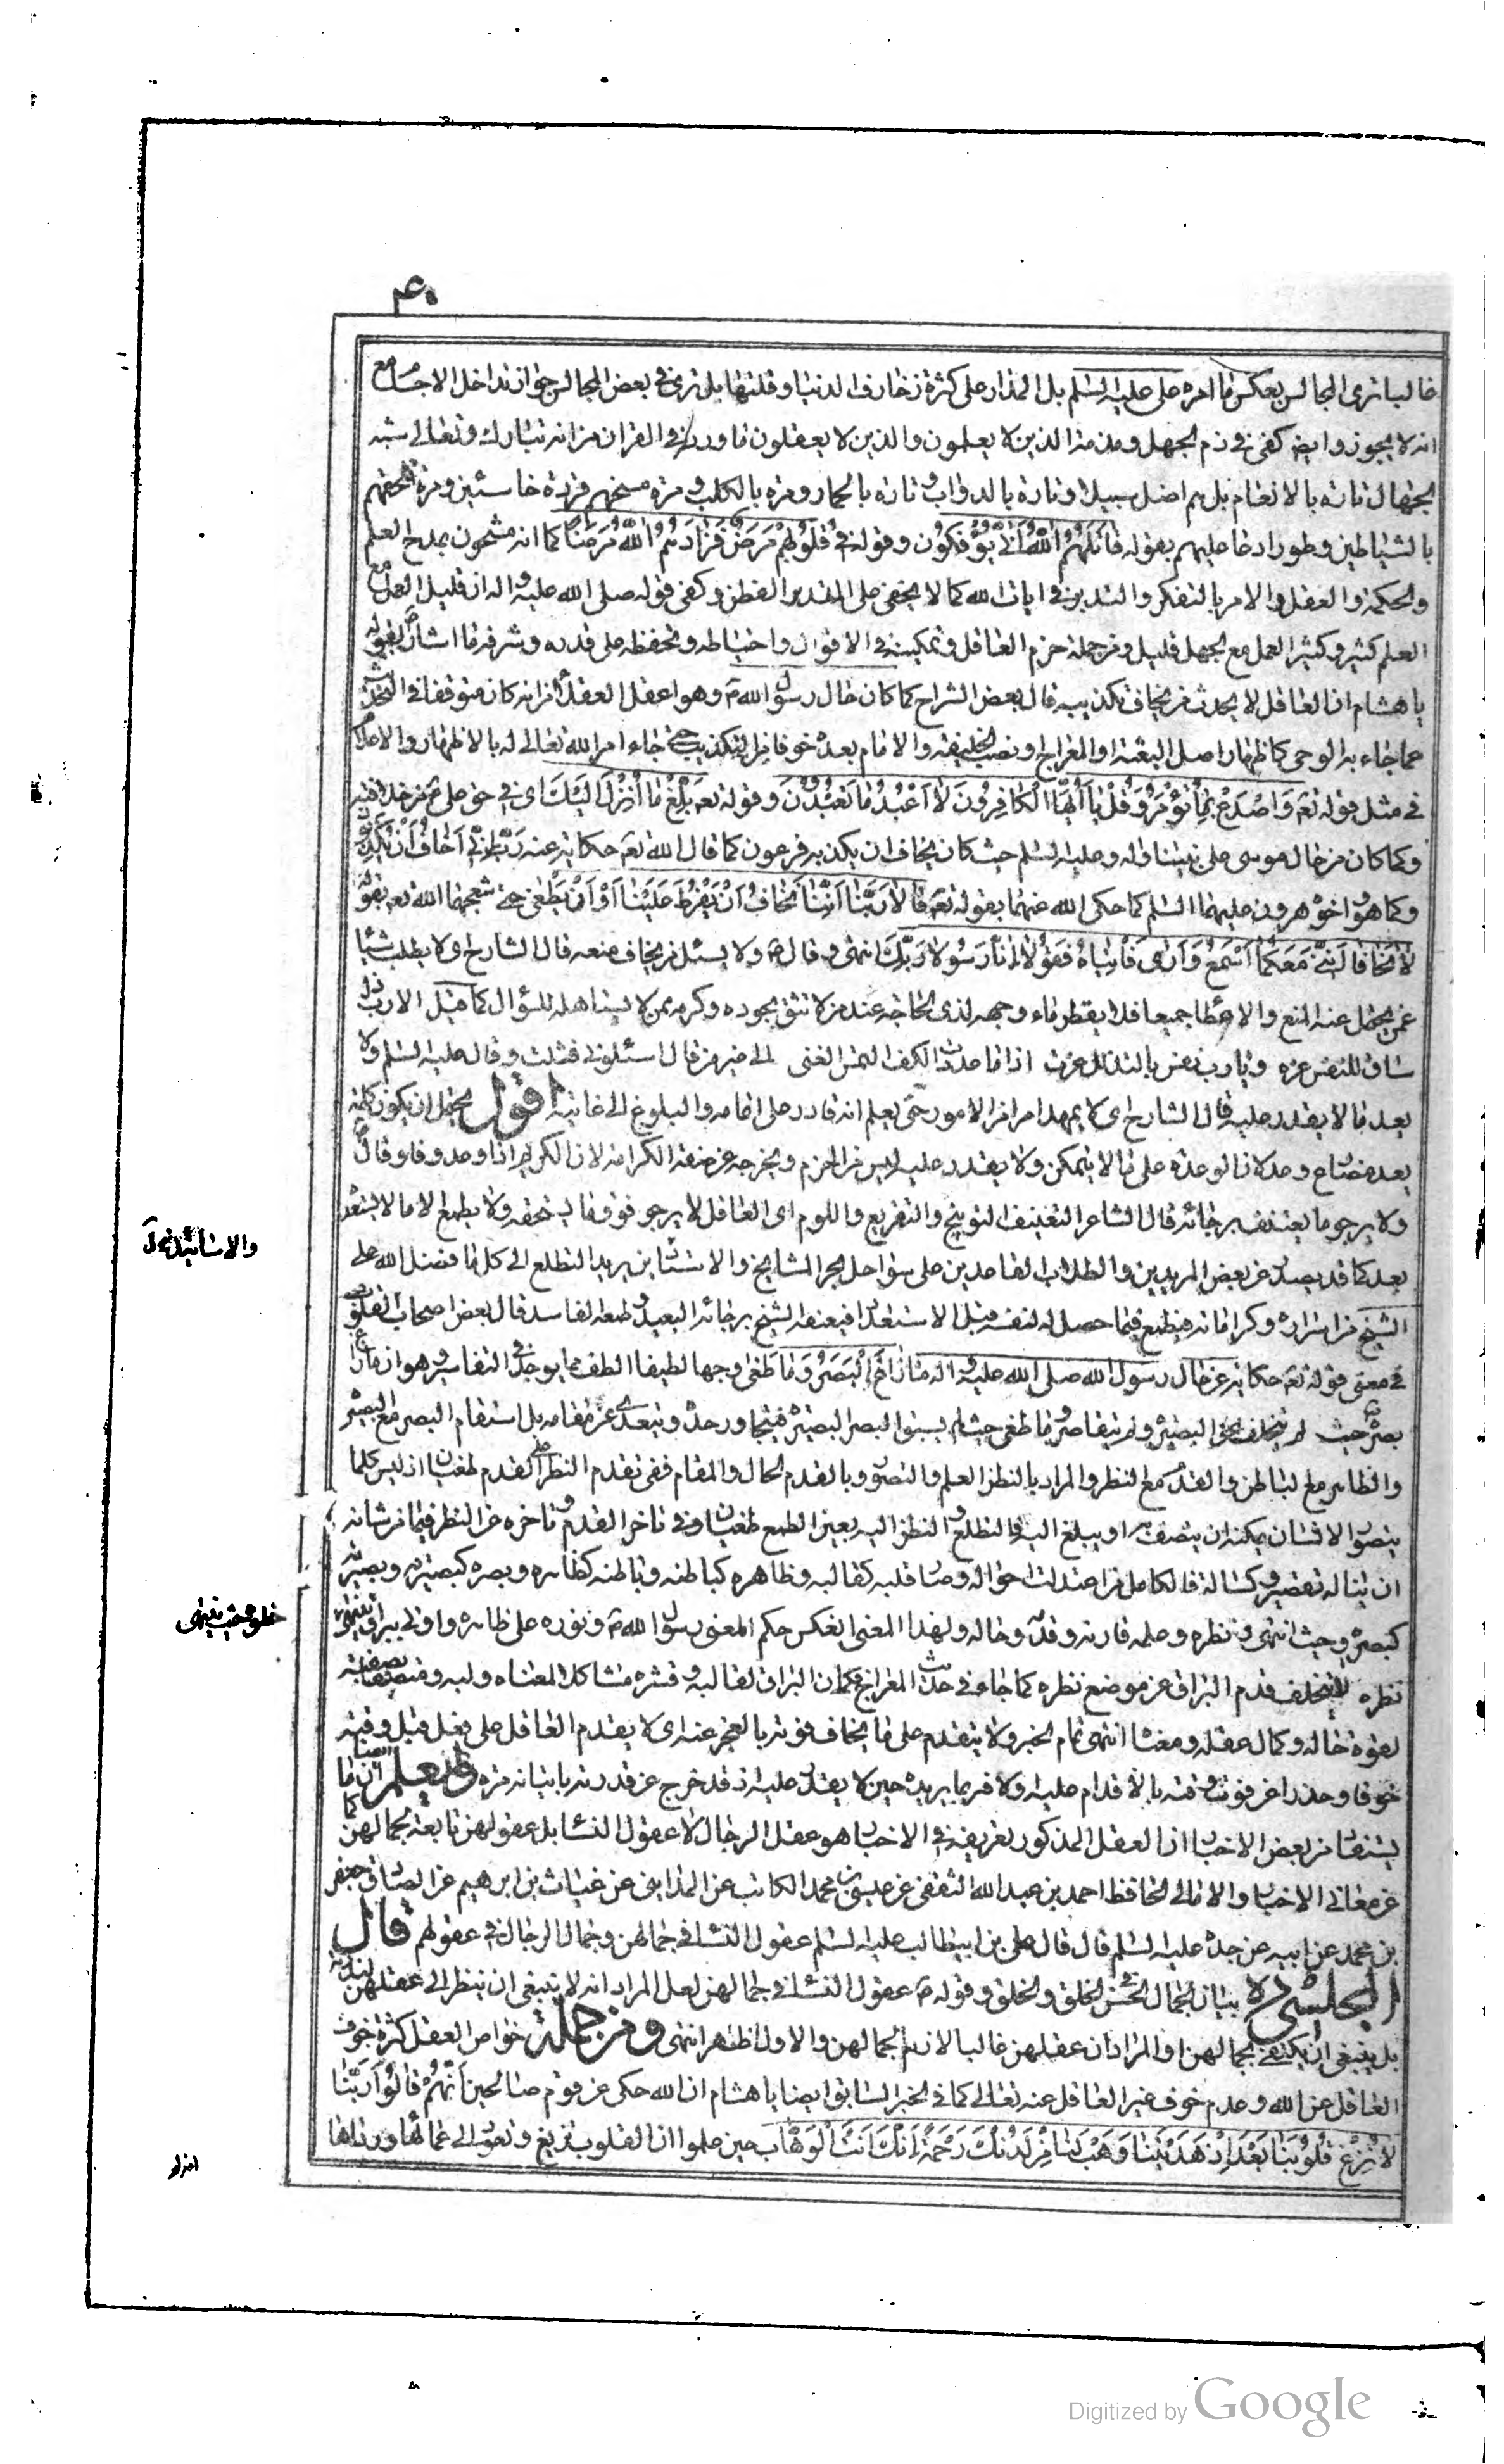 ۴۰
غالبا ترى المجالس بعكس ما امره على عليه السلم بل المدار على كثرة زخارف الدنيا وقلتها بل ترى فى بعض المجالس جواز تداخل الاجسام مع
انه لا يجوز وايض كفى فى ذم الجهل ومذمة الذين لا يعلمون والذين لا يعقلون ما ورد فى القران من انه تبارك وتعالى شبه
الجهال تارة بالانعام بل هم اضل سبيلا وتارة بالدواب وتارة بالحمار ومرة بالكلب ومرة مسخهم قردة خاسئين ومرة الحقهم
بالشياطين وطورا دعا عليهم بقوله قاتلهم الله انى يؤفكون وقوله فى قلوبهم مرض فزادهم الله مرضا كما انه مشحون بمدح العلم
والحكمة والعقل والامر بالتفكر والتدبر فى ايات الله كما لا يخفى على المتدبر الفطن وكفى قوله صلى الله عليه واله ان قليل العمل مع
العلم كثير وكثير العمل مع الجهل قليل ومن جملة حزم العاقل وتمكينه فى الاقوال واحتياطه وتحفظه على قدره وشرفه ما اشار بقوله
يا هشام ان العاقل لا يحدث من يخاف تكذيبه قال بعض الشراح كما كان حال رسول الله ص وهو اعقل العقلاء من انه كان متوقفا فى التحدث
عما جاء به الوحى كاظهار اصل البعثة او المعراج ونصب الخليفة والامام بعده خوفا من التكذيب حتى جاء امر الله تعالى له بالاظهار والاعلان
فى مثل قوله تع واصدع بما تؤمر وقل يا ايها الكافرون لا اعبد ما تعبدون وقوله تع بلغ ما انزل اليك اى فى حق على ع من خلافته
وكما كان من حال موسى على نبينا واله وعليه السلم حيث كان يخاف ان يكذبه فرعون كما قال الله تع حكاية عنه رب انى اخاف ان يكذبون
وكما هو واخوه هرون عليهما السلم كما حكى الله عنهما بقوله تع قالا ربنا اننا نخاف ان يفرط علينا او ان يطغى حتى شجعهما الله تع بقوله
لا تخافا اننى معكما اسمع وارى فاتياه فقولا انا رسولا ربك انتهى وقال ع ولا يسئل من يخاف منعه قال الشارح اى لا يطلب شيئا
عمن يحتمل عنه المنع والاعطا جميعا فلا يقطر ماء وجهه لذى الحاجة عند من لا تثق بجوده وكرمه ممن لا يستاهله للسؤال كما قيل الا رب ذل
ساق للنفس عزه ويا رب نفس بالتذلل عزت اذا ما مددت الكف التمس الغنى الى غير من قال اسئلونى فشلت وقال عليه السلم ولا
يعد ما لا يقدر عليه قال الشارح اى لا يمهد امرا من الامور حتى يعلم انه قادر على اتمامه والبلوغ الى غايته اقول يحتمل ان يكون كلمة
يعد مضارع وعد لان الوعده على ما لا يتمكن ولا يقدر عليه ليس من الحزم ويخرجه عن صفة الكرامة لان الكريم اذا وعد وفا وقال ع
ولا يرجو ما يعنف برجائه قال الشاعر التعنيف التوبيخ والتقريع واللوم اى العاقل لا يرجو فوق ما يستحقه ولا يطمع لا ما لا يستعد
بعد كما قد يصدر عن بعض المريدين والطلاب القاعدين على سواحل بحر المشايخ والاستاتين يريد التطلع الى كل ما فضل الله على
الشيخ من اسراره وكراماته فيطمع فيما حصل له لنفسه قبل الاستعداد فيعنفه الشيخ برجائه البعيد وطمعه الفاسد قال بعض اصحاب القلوب
فى معنى قوله تع حكاية عن حال رسول الله صلى الله عليه واله ما زاغ البصر وما طغى وجها لطيفا الطف مما يوجد فى التفاسير وهو ان ما زاغ
بصره حيث لم يتخلف عن البصيرة ولم يتقاصر وما طغى حيث لم يسبق البصر البصيرة فيتجاوز حده ويتعدى عن مقامه بل استقام البصر مع البصيرة
والظاهر مع الباطن والقدم مع النظر والمراد بالنظر العلم والتصور وبالقدم الحال والمقام ففى تقدم النظر على القدم طغيان اذ ليس كلما
يتصور الانسان يمكنه ان يتصف به او يبلغ اليه والتطلع والنظر اليه بعين الطمع طغيان وفى تاخر القدم وتاخره عن النظر فيما من شانه
ان يناله تقصير وكسالة فالكامل من اعتدلت احواله وصار قلبه كقالبه وظاهره كباطنه وباطنه كظاهره وبصره كبصيرته وبصيرته
كبصره وحيث انتهى ونظره وعلمه قارنه وقدمه وحاله ولهذا المعنى انعكس حكم المعنى رسول الله ص ونوره على ظاهره واتى ببراق ينتهى
نظره لا يتخلف قدم البراق عن موضع نظره كما جاء فى حديث المعراج فكان البراق لقالبه وقشره مشاكلا لمعناه ولبه ومتصفا بصفته
لقوة حاله وكمال عقله ومعناه انتهى تمام الخبر ولا يتقدم على ما يخاف فوته بالعجز عنه اى لا يقدم العاقل على فعل قبل وقته
خوفا وحذرا عن فوت وقته بالاقدام عليه ولا فربما يريده حين لا يقدر عليه اذ قد خرج عن قدرته باتيانه مره وليعلم ايضا ان ما
يستفاد من بعض الاخبار ان العقل المذكور تعريفه فى الاخبار هو عقل الرجال لا عقول النساء بل عقولهن تابعة بجمالهن كما
عن معانى الاخبار والامالى الحافظ احمد بن عبد الله الثقفى عن عيسى بن محمد الكاتب عن المداينى عن غياث بن ابرهيم عن الصادق جعفر
بن محمد عن ابيه عن جده عليه السلم قال قال على بن ابيطالب عليه السلم عقول النساء فى جمالهن وجمال الرجال فى عقولهم قال
المجلسى ره بيان الجمال الحسن فى الخلق والخلق وقوله ع عقول النساء فى جمالهن لعل المراد انه لا ينبغى ان ينظر الى عقلهن لندرته
بل ينبغى ان يكتفى بجمالهن او المراد ان عقلهن غالبا لازم لجمالهن والاول اظهر انتهى ومن جملة خواص العقل كثرة خوف
العاقل من الله وعدم خوف غير العاقل عنه تعالى كما فى الخبر السابق ايضا يا هشام ان الله حكى عن قوم صالحين انهم قالوا ربنا
لا تزغ قلوبنا بعد اذ هديتنا وهب لنا من لدنك رحمة انك انت الوهاب حين علموا ان القلوب تزيغ وتعود الى عماها ورداها
Digitized by Google